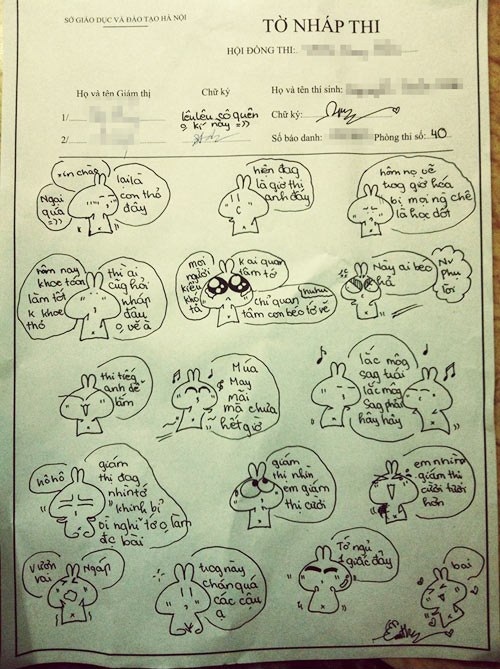 SỞ GIÁO DỤC VÀ ĐÀO TẠO HÀ NỘI
TỜ NHÁP THI
HỘI ĐỒNG THI:
Họ và tên Giám thị
Chữ ký
Họ và tên thí sinh:
1/
lêu lêu cô quên
kí này =))
Chữ ký:
2/
Số báo danh:
Phòng thi số: 40
xin chào
Ngại
quá =))
lại là
con thỏ
đây
hiện đag
là giờ thi
anh đây
hôm nọ vẽ
trog giờ hóa
bị mọi ng chê
là học dốt
hôm nay
khoe toán
làm tốt
k khoe
thó
thì ai
cũg phải
nháp
đâu
vẽ à
mọi
người
kiểu
khó
tả
k ai quan
tâm tớ
huhu
chỉ quan
tâm con béo tớ vẽ
Này ai béo
hả
Nv
Phụ
tôi
thi tiếg
anh dễ
lắm
Múa
May
mãi
mà chưa
hết giờ
lắc môg
sag trái
lắc môg
sag phải
hây hây
hô hô
giám
thị đag
nhìn tớ
khinh bỉ
oi nghĩ tớ k làm
đc bài
giám
thị nhìn
em giám
thị cười
em nhìn
giám thị
cười tươi
hơn
vươn
vai
Ngáp
trog này
chán quá
các cậu
ạ
Tớ ngủ
1 giấc đây
bai